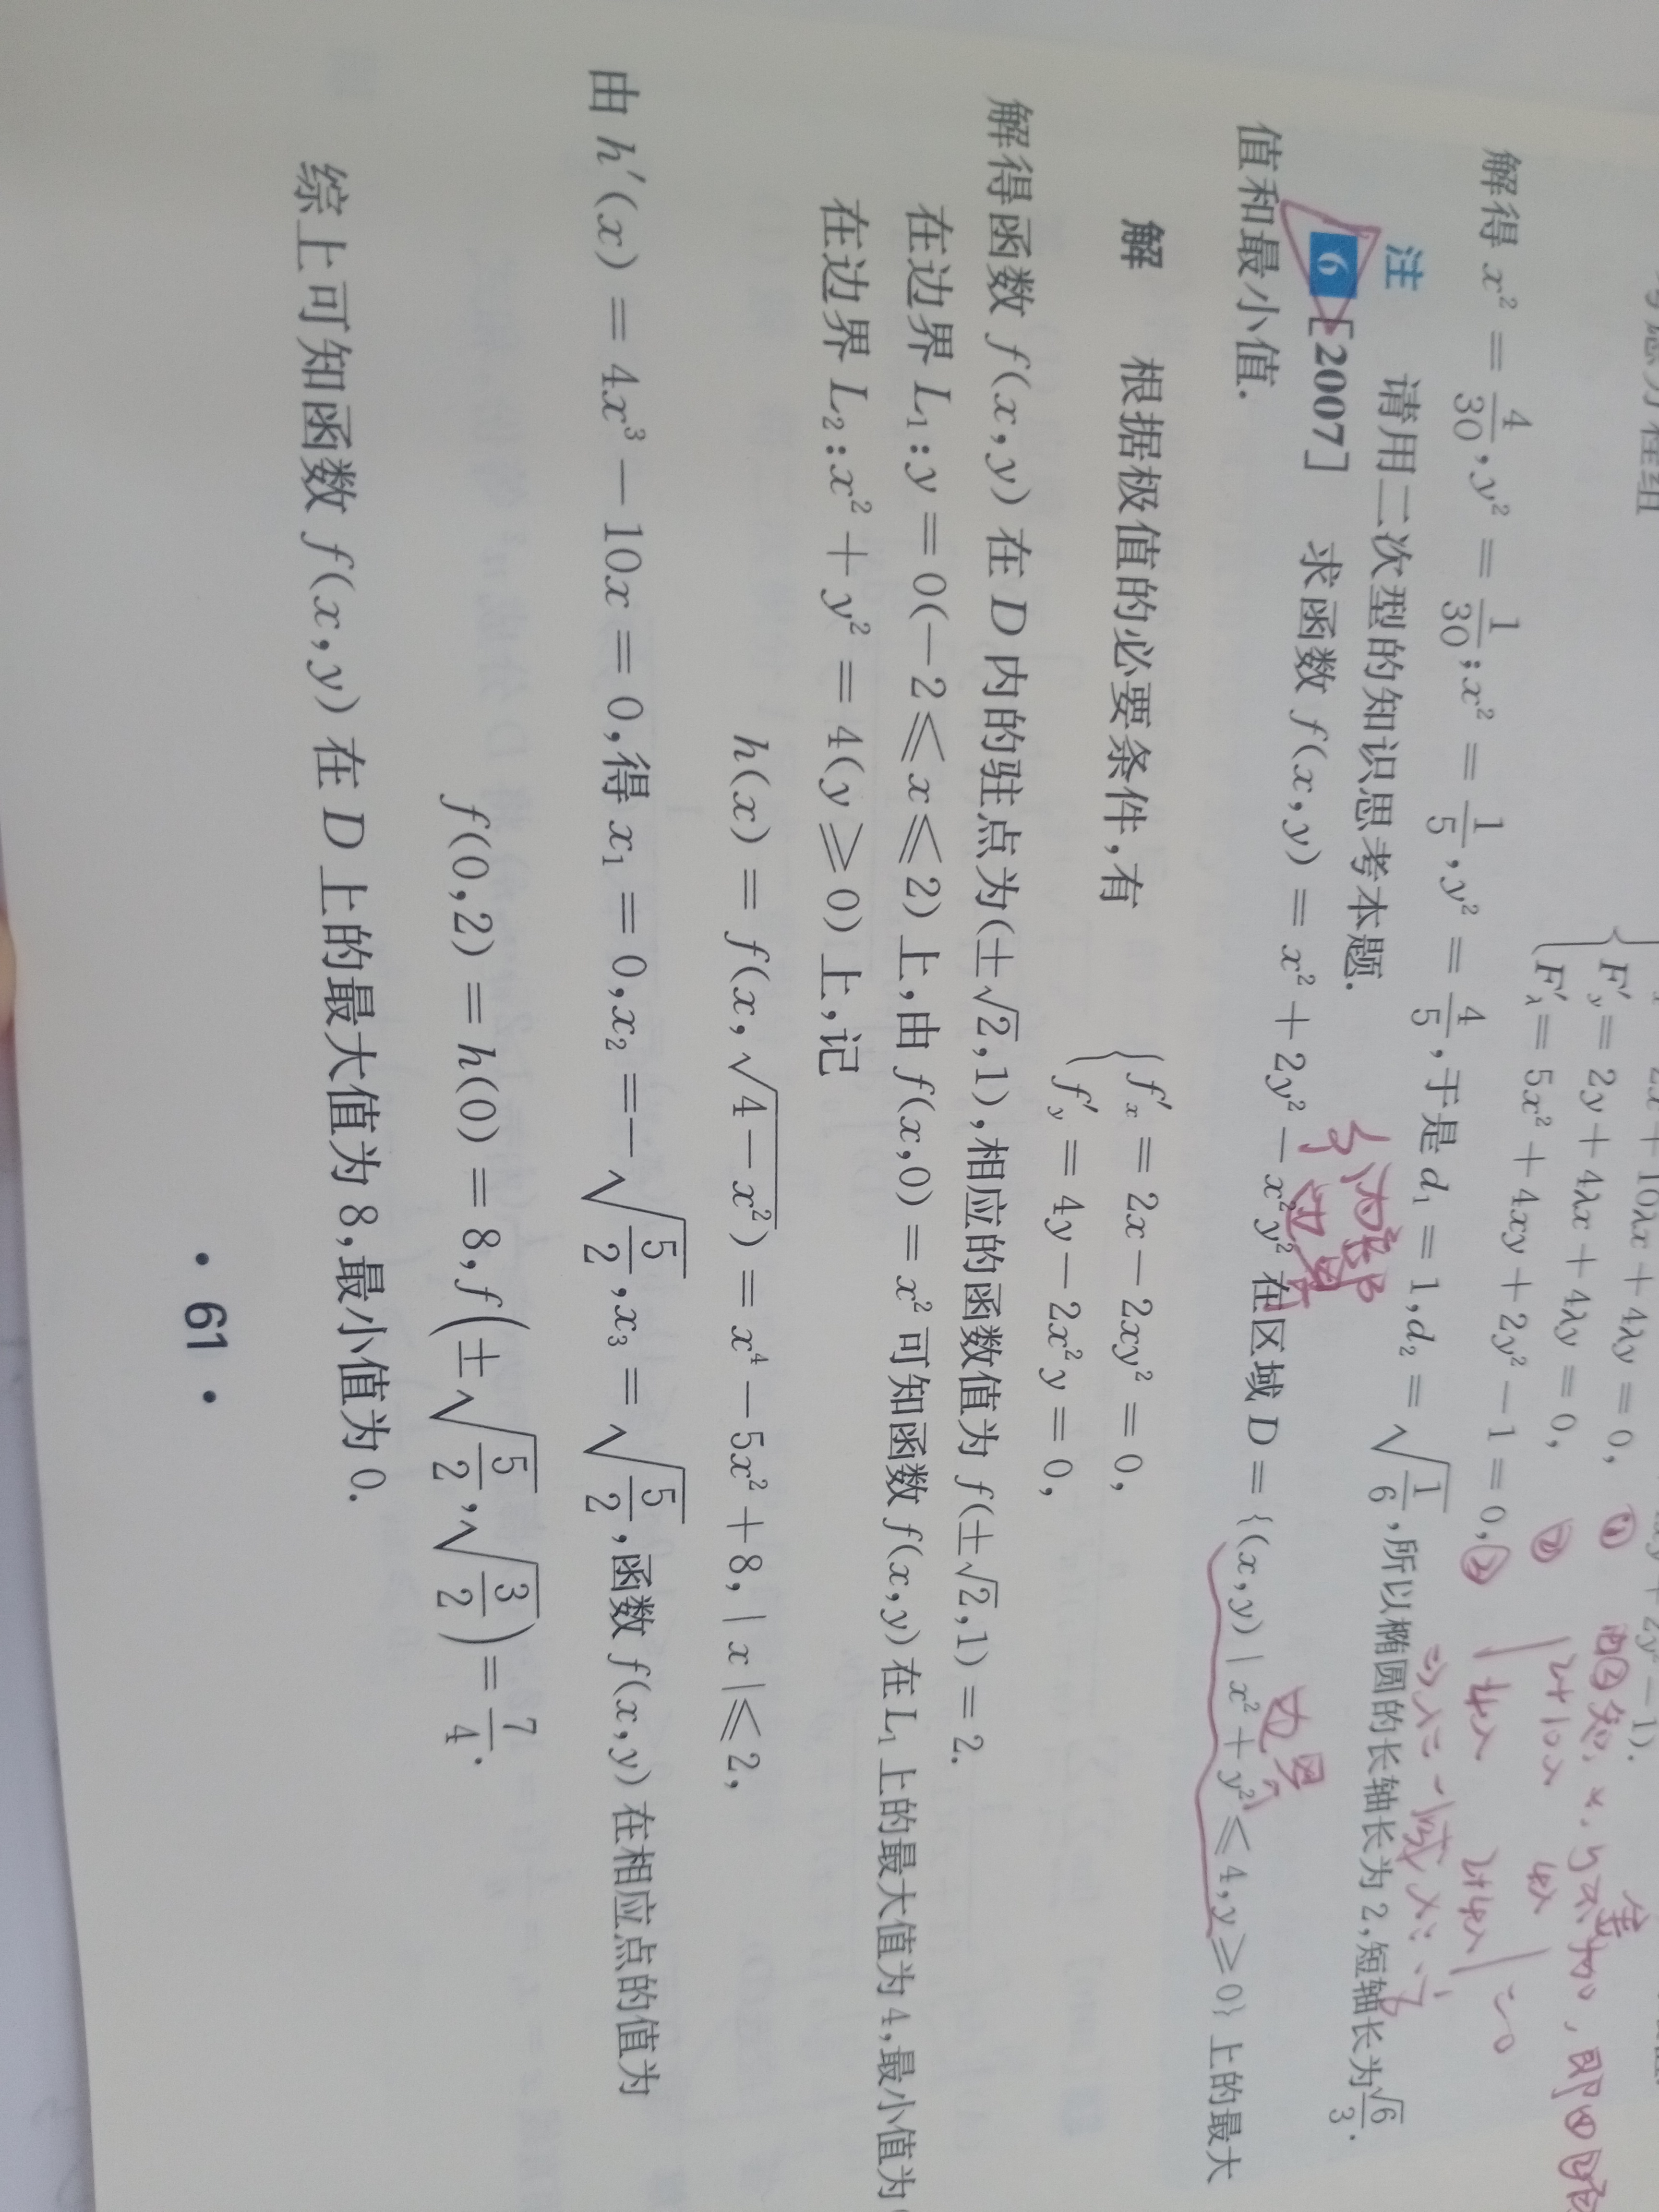 F′y = 2y + 4λx + 4λy = 0, ①
F′λ = 5x² + 4xy + 2y² − 1 = 0, ②
解得 x² = 4/30, y² = 1/30; x² = 1/5, y² = 4/5, 于是 d₁ = 1, d₂ = √(1/6), 所以椭圆的长轴长为 2, 短轴长为 √6/3.
注 请用二次型的知识思考本题.
内部
边界
6 [2007] 求函数 f(x,y) = x² + 2y² − x²y² 在区域 D = {(x,y) | x² + y² ≤ 4, y ≥ 0} 上的最大
边界
值和最小值.
解 根据极值的必要条件,有
{ f′x = 2x − 2xy² = 0,
f′y = 4y − 2x²y = 0,
解得函数 f(x,y) 在 D 内的驻点为(±√2,1),相应的函数值为 f(±√2,1) = 2.
在边界 L₁: y = 0(−2 ≤ x ≤ 2) 上,由 f(x,0) = x² 可知函数 f(x,y) 在 L₁ 上的最大值为 4,最小值为
在边界 L₂: x² + y² = 4(y ≥ 0) 上,记
h(x) = f(x, √(4 − x²)) = x⁴ − 5x² + 8, | x | ≤ 2,
由 h′(x) = 4x³ − 10x = 0,得 x₁ = 0, x₂ = −√(5/2), x₃ = √(5/2), 函数 f(x,y) 在相应点的值为
f(0,2) = h(0) = 8, f(±√(5/2), √(3/2)) = 7/4.
综上可知函数 f(x,y) 在 D 上的最大值为 8,最小值为 0.
· 61 ·